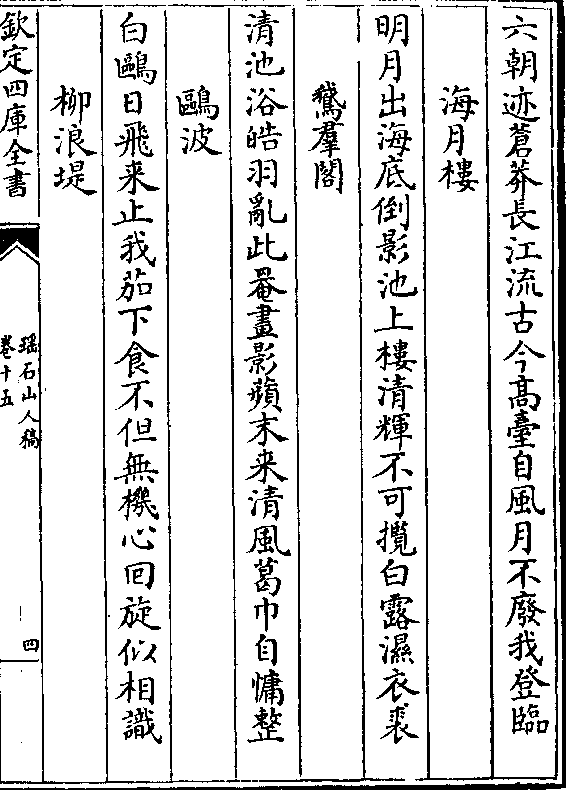 六朝迹蒼莽長江流古今髙臺自風月不廢我登臨
海月樓
明月出海底倒影池上樓清輝不可攬白露濕衣裘
鵞羣閣
清池浴皓羽亂此罨畫影蘋末来清風葛巾自慵整
鷗波
白鷗日飛来止我茄下食不但無機心回旋似相識
柳浪堤
欽定四庫全書
瑶石山人稿
卷十五
四